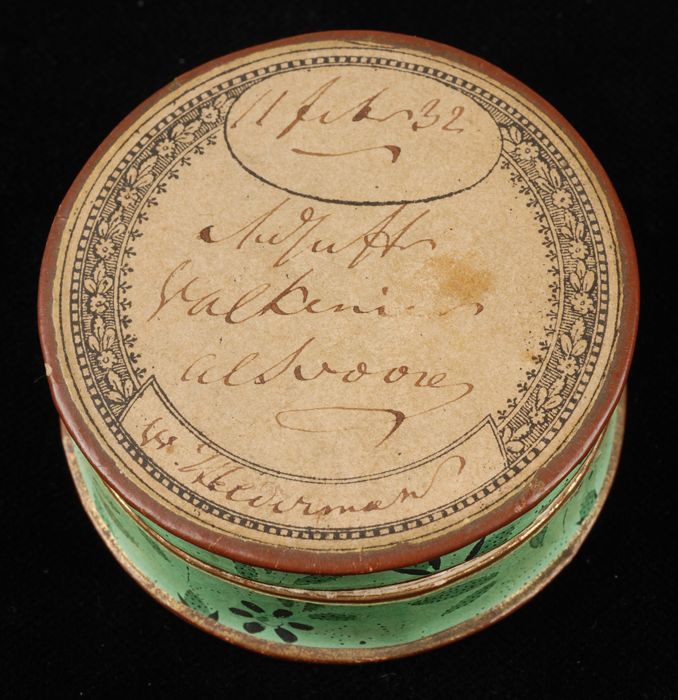 11 feb 32
Mejuffr
Valkenier
als voore
W. Heverman